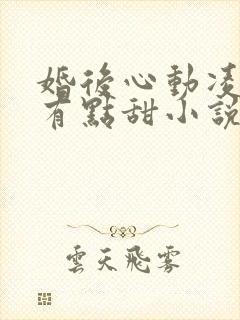 婚後心動凌
有點甜小說
雲天飛霧